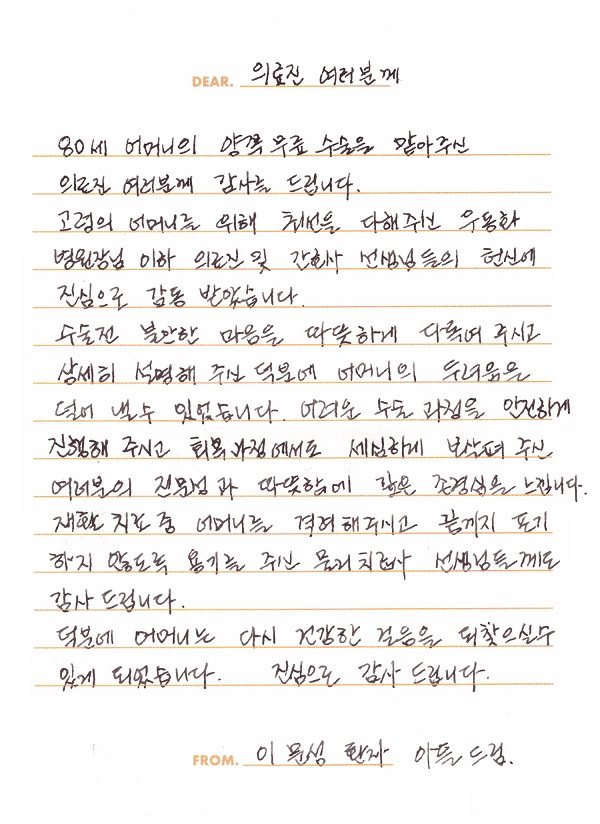 DEAR. 의료진 여러분께
80세 어머니의 양쪽 무릎 수술을 맡아주신
의료진 여러분께 감사를 드립니다.
고령의 어머니를 위해 최선을 다해주신 우동화
병원장님 이하 의료진 및 간호사 선생님들의 헌신에
진심으로 감동 받았습니다.
수술전 불안한 마음을 따뜻하게 다독여 주시고
상세히 설명해 주신 덕분에 어머니의 두려움을
덜어 낼수 있었습니다. 어려운 수술 과정을 안전하게
진행해 주시고 회복과정에서도 세심하게 보살펴 주신
여러분의 전문성과 따뜻함에 깊은 존경심을 느낍니다.
재활 치료 중 어머니를 격려해주시고 끝까지 포기
하지 않도록 용기를 주신 물리치료사 선생님들께도
감사 드립니다.
덕분에 어머니는 다시 건강한 걸음을 되찾으실수
있게 되었습니다. 진심으로 감사 드립니다.
FROM. 이문성 환자 아들 드림.